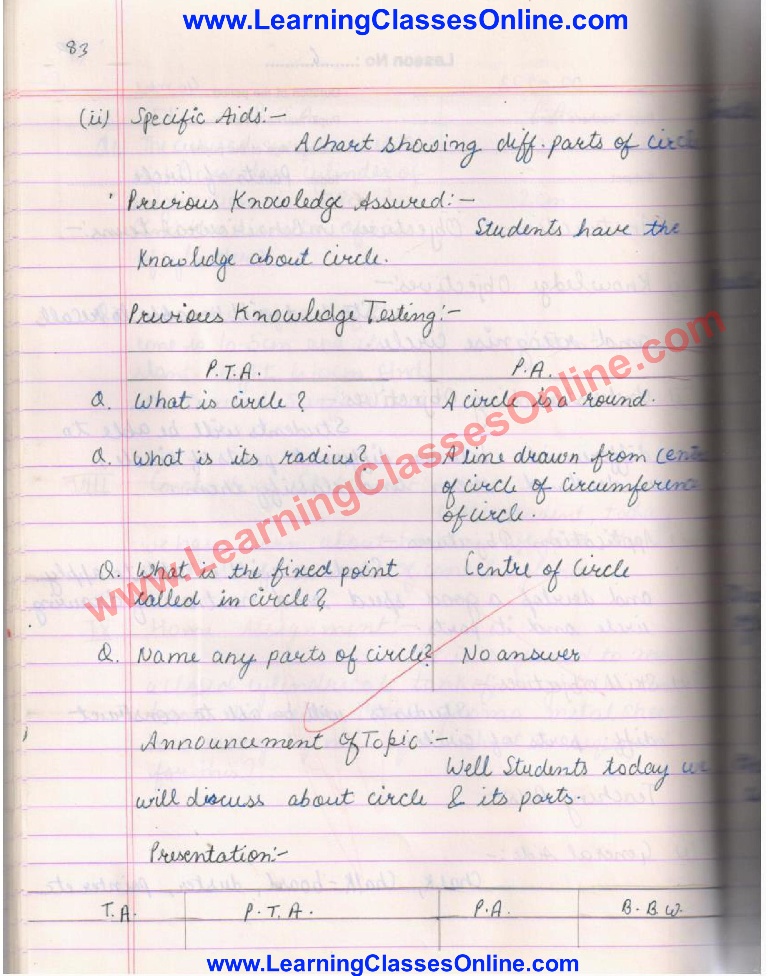 www.LearningClassesOnline.com
83
(ii) Specific Aids:-
A chart showing diff. parts of circle
Previous Knowledge Assured:-
Students have the
Knowledge about circle.
Previous Knowledge Testing:-
P.T.A. P.A.
Q. What is circle? A circle is a round.
Q. What is its radius? A line drawn from centre
of circle of circumference
of circle.
Q. What is the fixed point Centre of Circle
called in circle?
Q. Name any parts of circle? No answer
www.LearningClassesOnline.com
Announcement of Topic:-
Well Students today we
will discuss about circle & its parts.
Presentation:-
T.A. P.T.A. P.A. B.B.W.
www.LearningClassesOnline.com